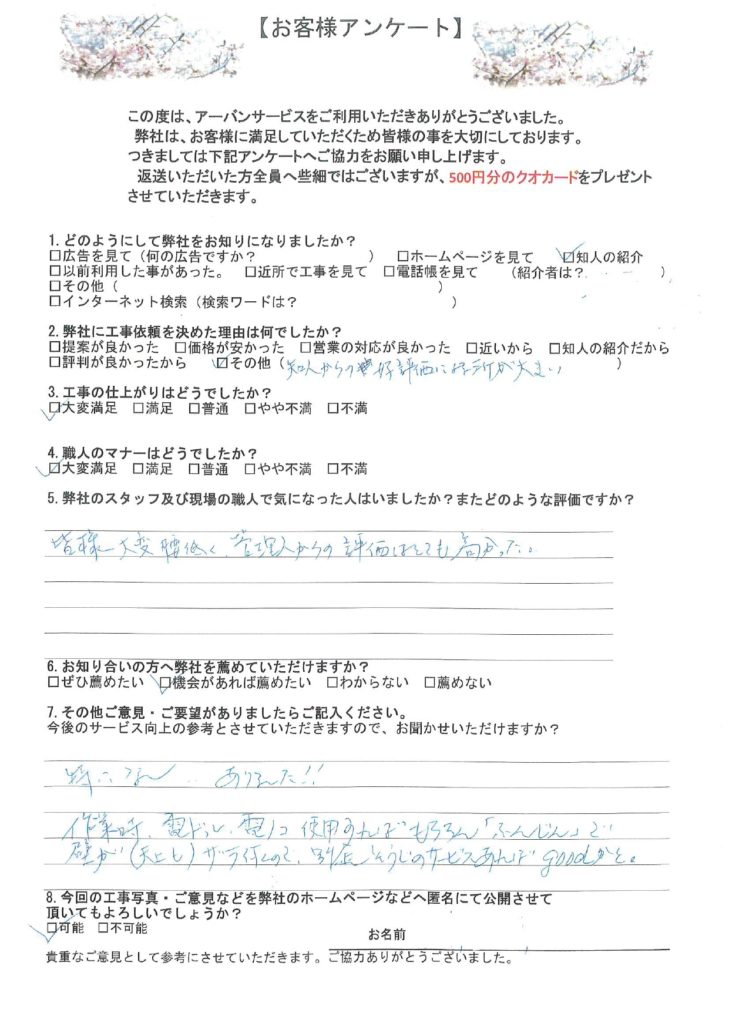 【お客様アンケート】
この度は、アーバンサービスをご利用いただきありがとうございました。
弊社は、お客様に満足していただくため皆様の事を大切にしております。
つきましては下記アンケートへご協力をお願い申し上げます。
返送いただいた方全員へ些細ではございますが、500円分のクオカードをプレゼント
させていただきます。
1.どのようにして弊社をお知りになりましたか？
□広告を見て（何の広告ですか？ ） □ホームページを見て ☑知人の紹介
□以前利用した事があった。 □近所で工事を見て □電話帳を見て （紹介者は？ ）
□その他（ ）
□インターネット検索（検索ワードは？ ）
2.弊社に工事依頼を決めた理由は何でしたか？
□提案が良かった □価格が安かった □営業の対応が良かった □近いから □知人の紹介だから
□評判が良かったから ☑その他（知人からの好評価に が大きい ）
3.工事の仕上がりはどうでしたか？
☑大変満足 □満足 □普通 □やや不満 □不満
4.職人のマナーはどうでしたか？
☑大変満足 □満足 □普通 □やや不満 □不満
5.弊社のスタッフ及び現場の職人で気になった人はいましたか？またどのような評価ですか？
皆様大変腰低く、管理人からの評価はとても高かった。
6.お知り合いの方へ弊社を薦めていただけますか？
□ぜひ薦めたい ☑機会があれば薦めたい □わからない □薦めない
7.その他ご意見・ご要望がありましたらご記入ください。
今後のサービス向上の参考とさせていただきますので、お聞かせいただけますか？
特に ‥ ありました!!
作業時、電ドル、電ノコ使用すればもちろん「ふんじん」で
壁が（天上も）ザラ付くので、別途そうじのサービスあれば goodかと。
8.今回の工事写真・ご意見などを弊社のホームページなどへ匿名にて公開させて
頂いてもよろしいでしょうか？
☑可能 □不可能
お名前
貴重なご意見として参考にさせていただきます。ご協力ありがとうございました。